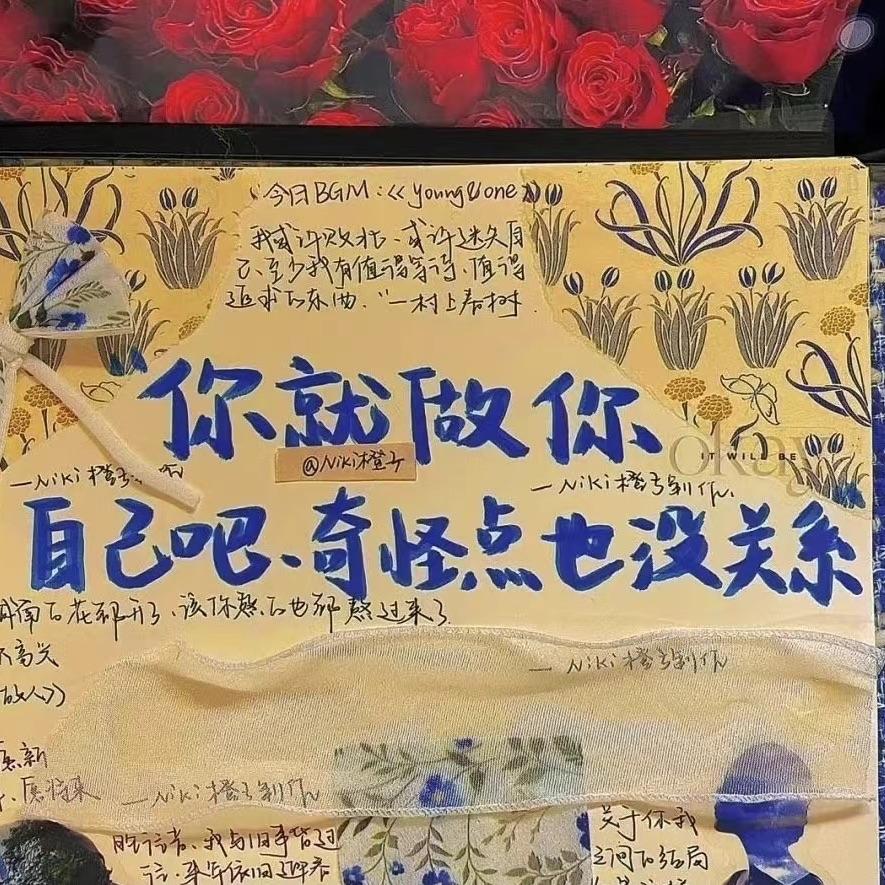 今日BGM:《young&one》
我或许败北、或许迷失自
己、至少我有值得等待、值得
追求的东西."一村上春树
"你就做你
@Niki橙子
okay
IT WILL BE
—Niki橙子
—Niki橙子制作.
自己吧、奇怪点也没关系
花都开了、该你熬的也都熬过来了.
不高兴
故人》》
— Niki橙子制作
愿新
、愿将来
—Niki橙子制作
我与旧事皆过
关于你我
之间的结局